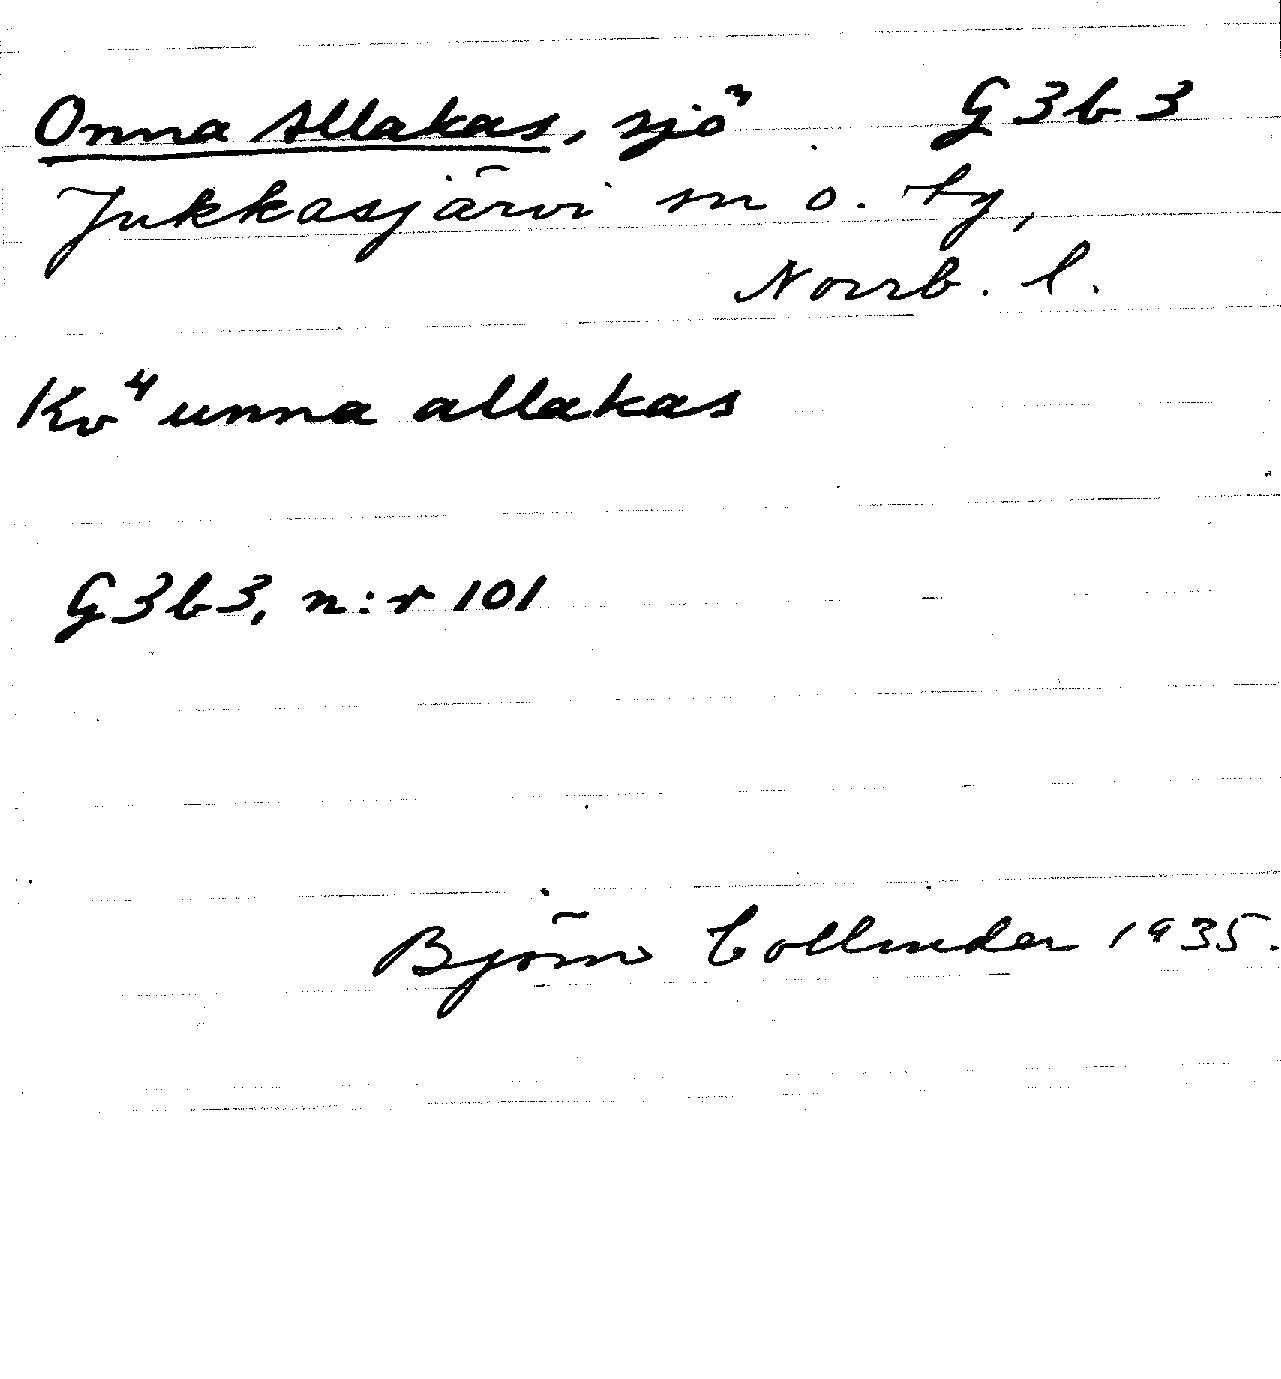 Onna Allakas, sjö G 3 b 3
Jukkasjärvi sn o. tg,
Norrb. l.
Kv⁴ unna allakas
G3b3, n:r 101
Björn Collinder 1935.